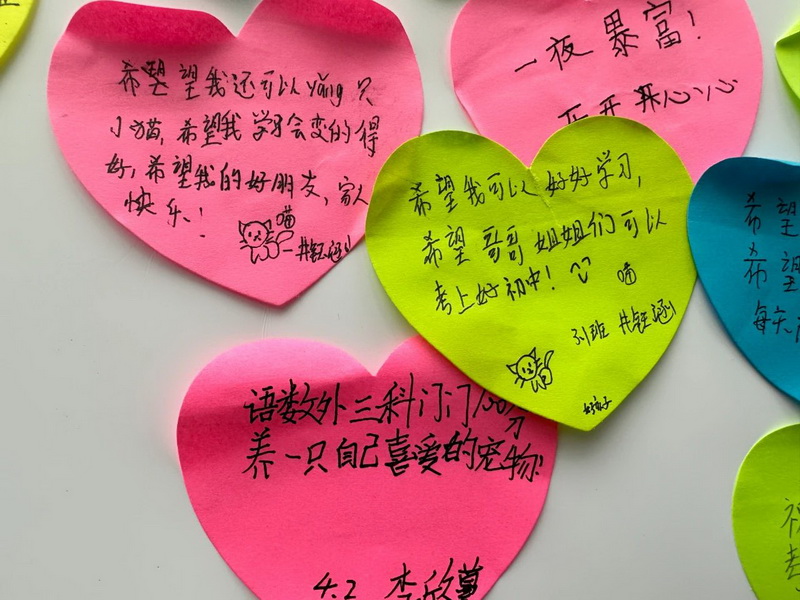 希望望我还可以yǎng只
小猫,希望我学习会变的得
好,希望我的好朋友,家人
快乐!
喵
一夜暴富!
开开心心
希望我可以好好学习,
希望哥哥姐姐们可以
考上好初中!
喵
3.1班 井钰涵
希望
希望
每天
语数外三科门门100分
养一只自己喜爱的宠物!
4.2 李欣